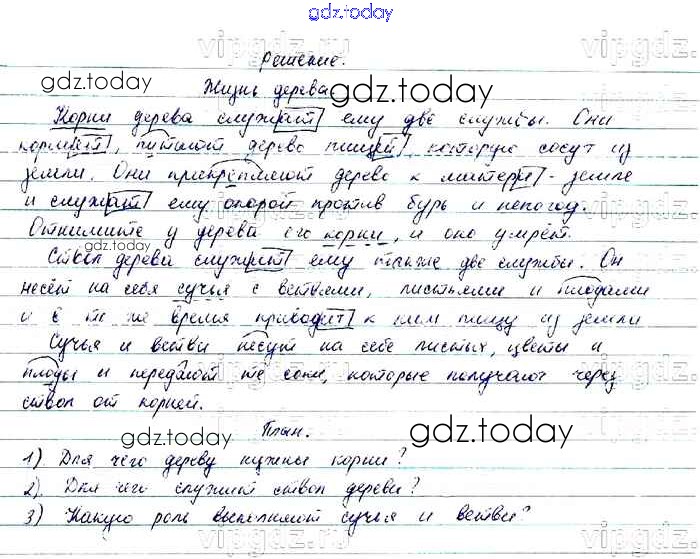 gdz.today
Решение.
Жизнь дерева
Корни дерева служат ему две службы. Они
кормят, питают дерево пищей, которую сосут из
земли. Они прикрепляют дерево к матери-земле
и служат ему опорой против бурь и непогод.
Отнимите у дерева его корни, и оно умрёт.
Ствол дерева служит ему также две службы. Он
несёт на себя сучья с ветвями, листьями и плодами
и в то же время приводит к ним пищу из земли
Сучья и ветви несут на себе листья, цветы и
плоды и передают те соки, которые получают через
ствол от корней.
План.
1) Для чего дереву нужны корни?
2) Для чего служит ствол дерева?
3) Какую роль выполняют сучья и ветви?
gdz.today
gdz.today
gdz.today
gdz.today
gdz.today
vipgdz.ru